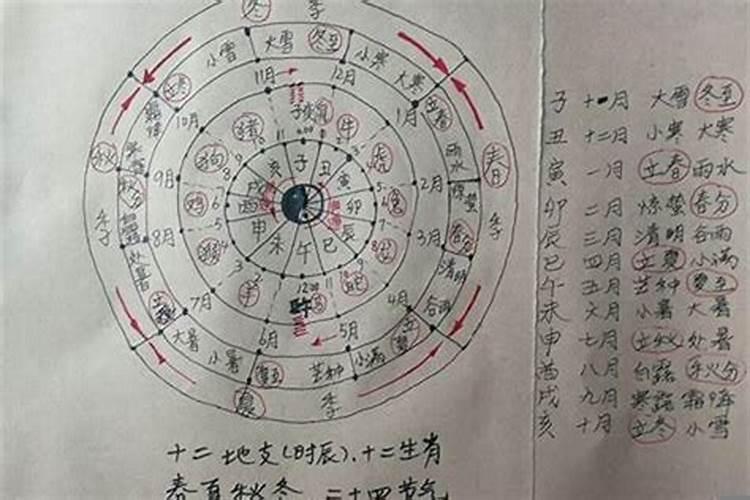 冬 季
小雪 大雪 冬至 小寒 大寒
立冬 立春
11月 12月
10月 1月
子 鼠
猪 牛
狗 虎
亥 子 丑
戌 寅
秋 春
9月 2月
雨水
秋分 惊蛰
鸡 酉 卯 兔
季 季
8月 3月
申 辰
未 午 巳
春分
处暑 清明
猴
羊
立秋 谷雨
7月 4月
12:00
6月 5月
大暑 小暑 夏至 芒种 小满 立夏
夏 季
子 十一月 大雪 冬至
丑 十二月 小寒 大寒
寅 一月 立春 雨水
卯 二月 惊蛰 春分
辰 三月 清明 谷雨
巳 四月 立夏 小满
午 五月 芒种 夏至
未 六月 小暑 大暑
申 七月 立秋 处暑
酉 八月 白露 秋分
戌 九月 寒露 霜降
亥 十月 立冬 小雪
十二地支(时辰)、十二生肖
春夏秋冬 二十四节气